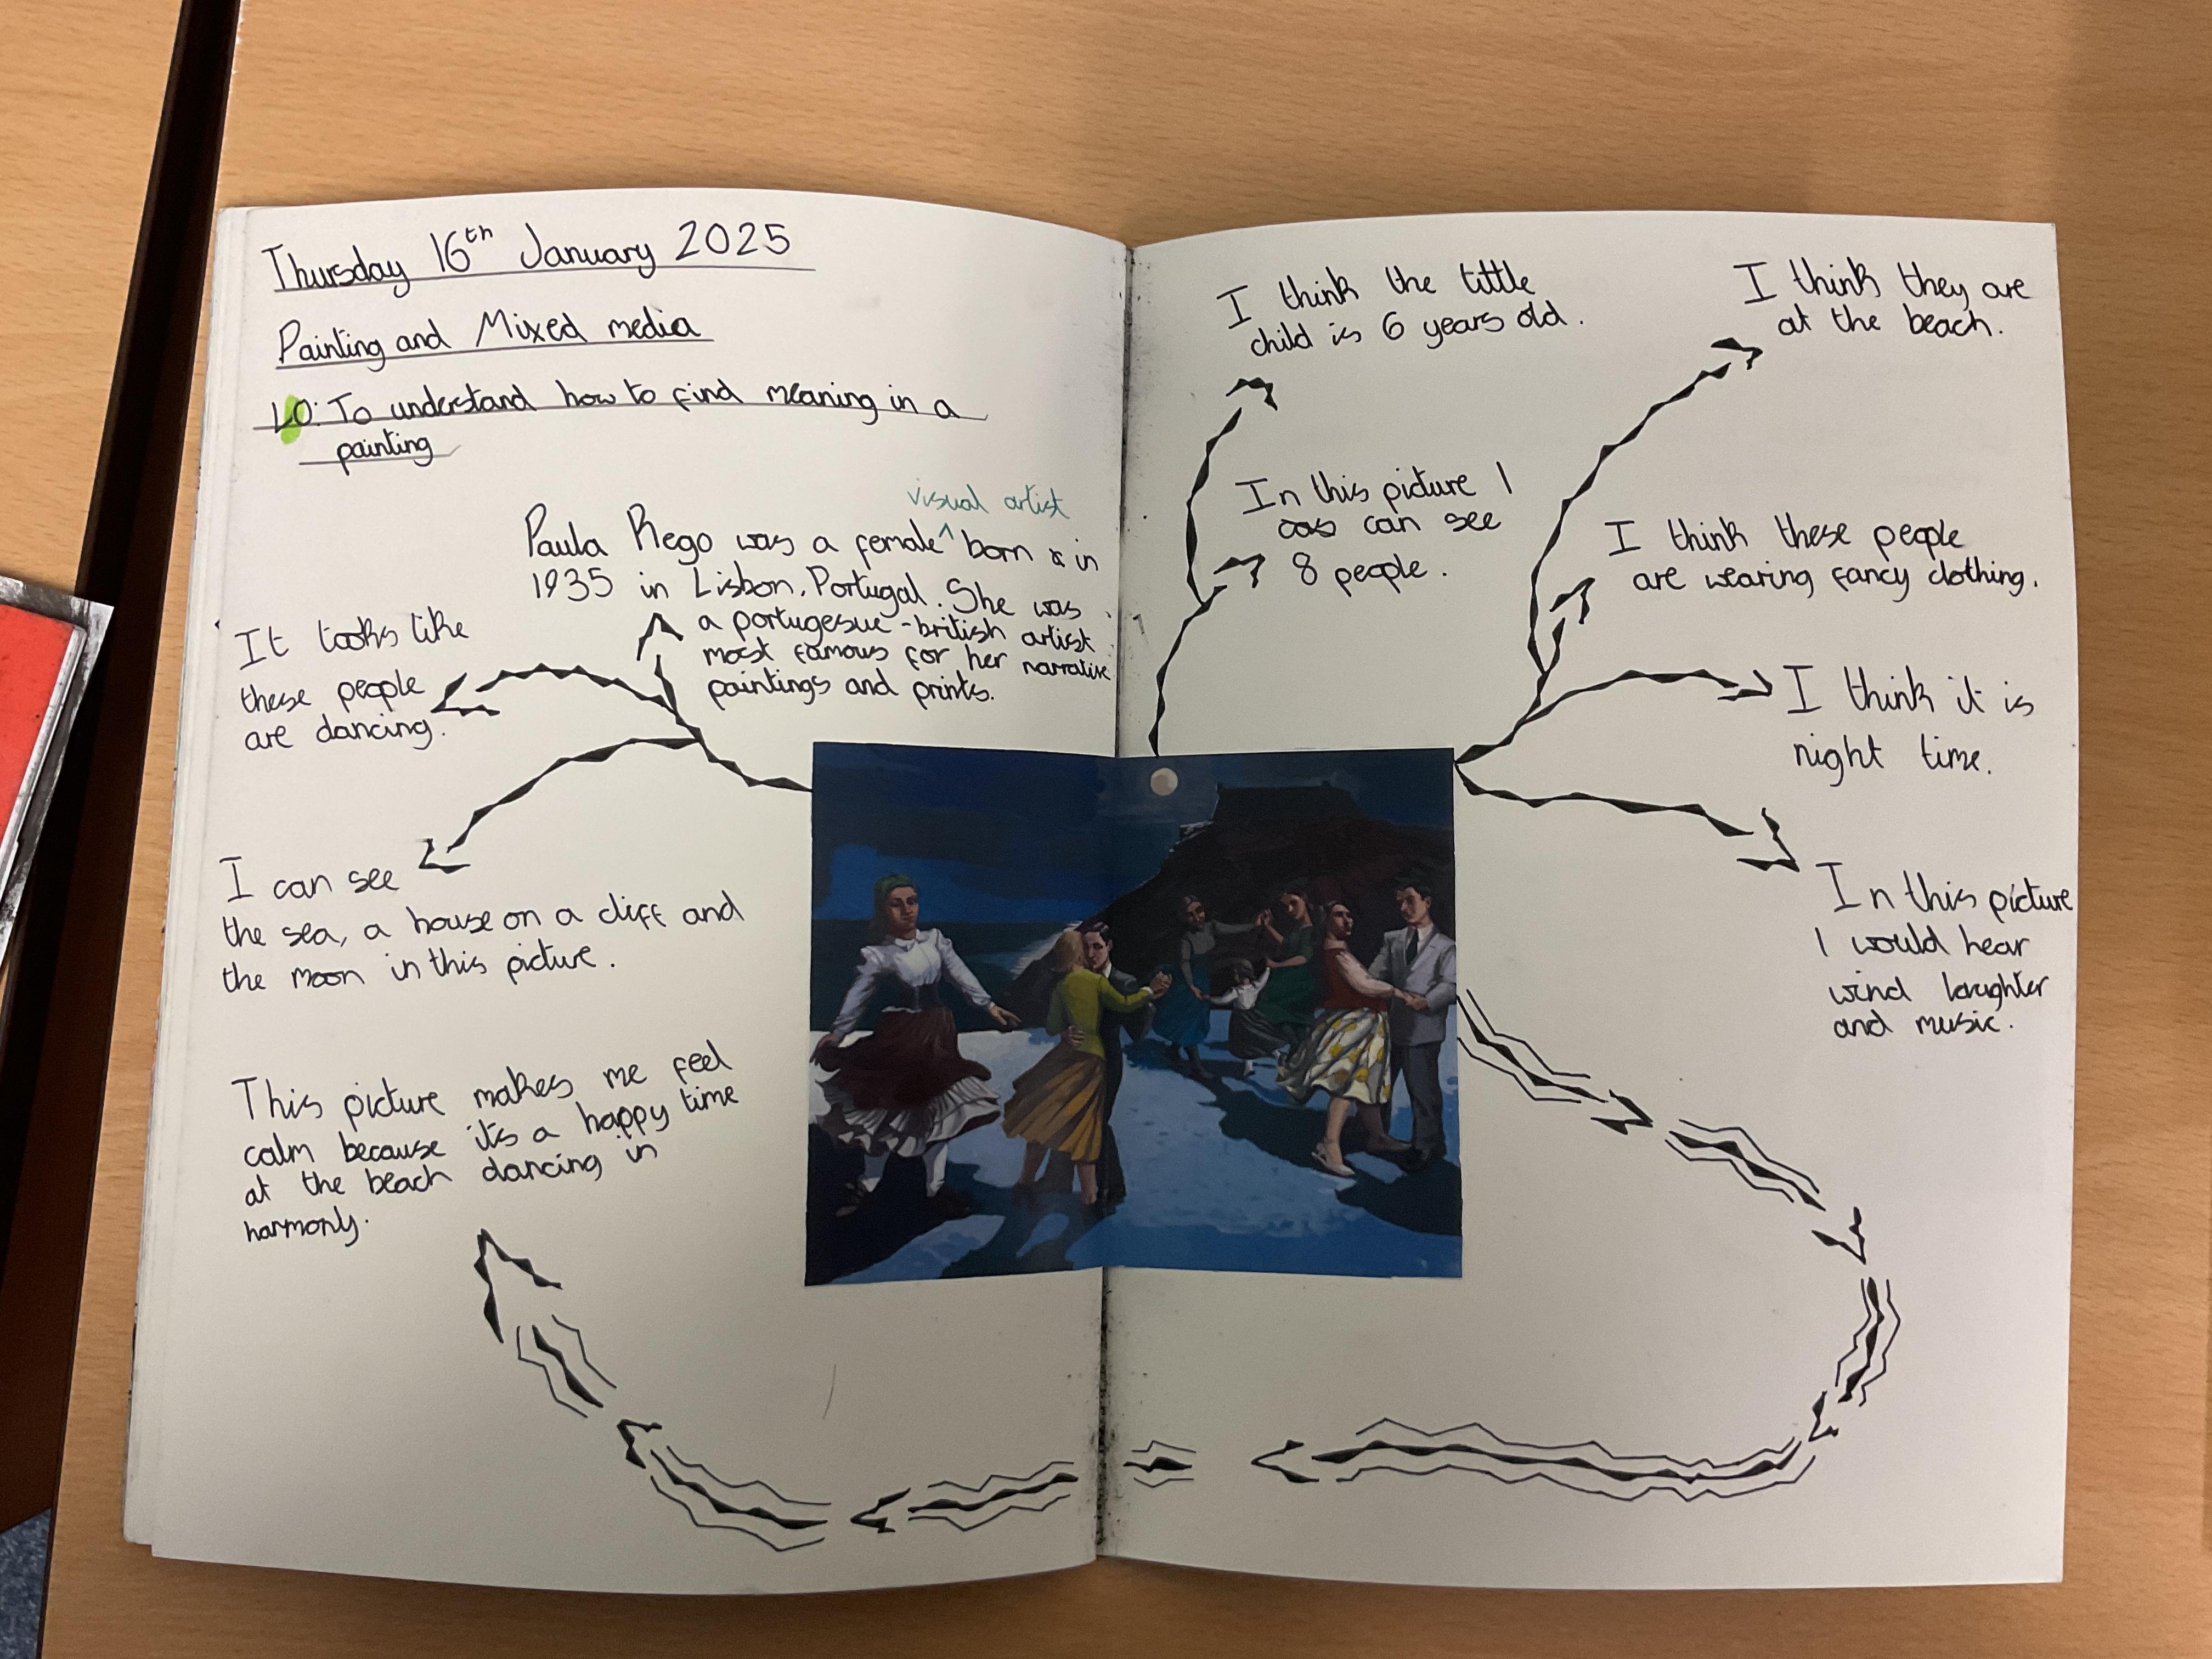 Thursday 16th January 2025
Painting and Mixed media
LO: To understand how to find meaning in a
painting
visual artist
Paula Rego was a female ^ born in
1935 in Lisbon, Portugal. She was
a portugesue-british artist
most famous for her narrative
paintings and prints.
It looks like
these people
are dancing.
I can see
the sea, a house on a cliff and
the moon in this picture.
This picture makes me feel
calm because its a happy time
at the beach dancing in
harmony.
I think the little
child is 6 years old.
In this picture I
can see
8 people.
I think they are
at the beach.
I think these people
are wearing fancy clothing.
I think it is
night time.
In this picture
I would hear
wind laughter
and music.